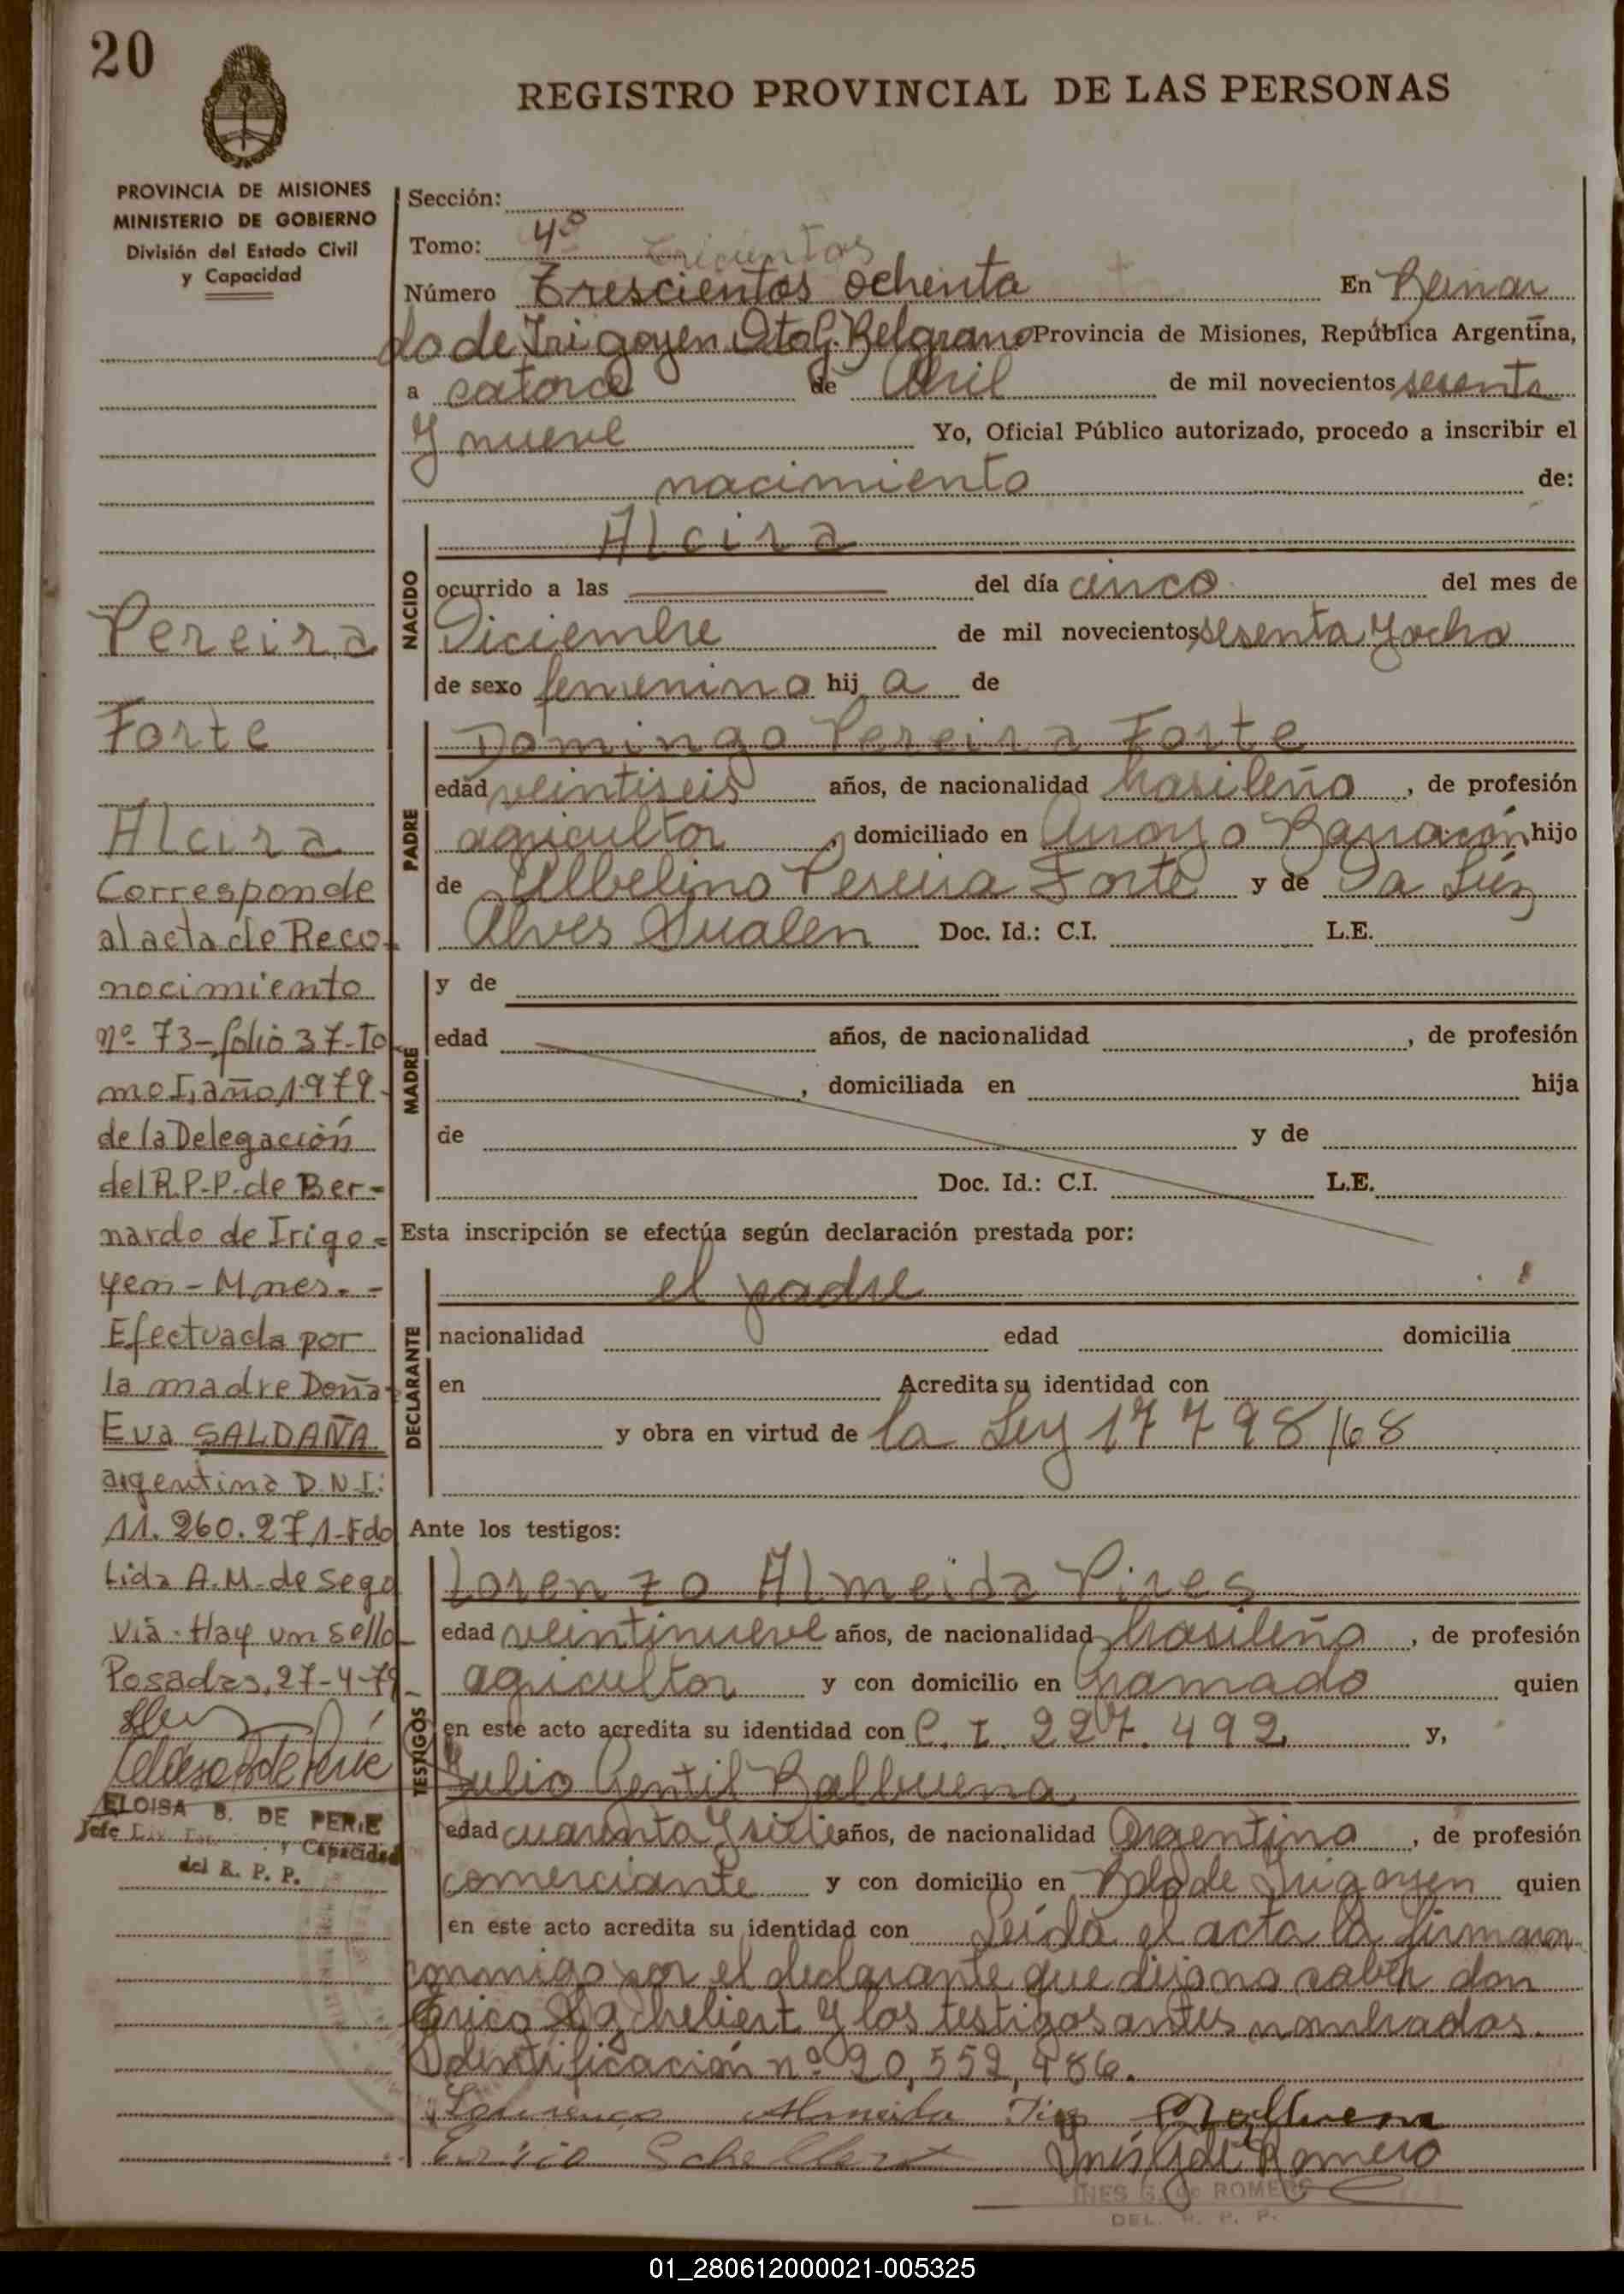 20
REGISTRO PROVINCIAL DE LAS PERSONAS
PROVINCIA DE MISIONES
MINISTERIO DE GOBIERNO
División del Estado Civil
y Capacidad
Pereira
Forte
Alcira
Corresponde
al acta de Reco-
nocimiento
nº 73-folio 37-To
mo I, año 1979-
de la Delegación
del R.P.P. de Ber-
nardo de Irigo-
yen - Mnes. -
Efectuada por
la madre Doña
Eva SALDAÑA
argentina D.N.I:
11.260.271-Fdo
Lida A.M. de Sego
via. Hay un sello-
Posadas, 27-4-79
ELOISA B. DE PERIE
Jefe y Capacidad
del R. P. P.
Sección:
Tomo: 4º
Número Trescientos ochenta En Bernar
do de Irigoyen Dto G. Belgrano Provincia de Misiones, República Argentina,
a catorce de Abril de mil novecientos sesenta
y nueve Yo, Oficial Público autorizado, procedo a inscribir el
nacimiento de:
NACIDO
Alcira
ocurrido a las del día cinco del mes de
Diciembre de mil novecientos sesenta y ocho
de sexo femenino hij a de
PADRE
Domingo Pereira Forte
edad veintiseis años, de nacionalidad brasileño, de profesión
agricultor, domiciliado en Arroyo Barracón hijo
de Albelino Pereira Forte y de Da Lúz
Alves Doc. Id.: C.I. L.E.
MADRE
y de
edad años, de nacionalidad , de profesión
, domiciliada en hija
de y de
Doc. Id.: C.I. L.E.
Esta inscripción se efectúa según declaración prestada por:
DECLARANTE
el padre
nacionalidad edad domicilia
en Acredita su identidad con
y obra en virtud de la Ley 17798/68
Ante los testigos:
TESTIGOS
Lorenzo Almeida Pires
edad veintinueve años, de nacionalidad brasileño, de profesión
agricultor y con domicilio en Gramado quien
en este acto acredita su identidad con C. I. 227.492. y,
Julio Gentil Balbuena
edad cuarenta y siete años, de nacionalidad Argentino, de profesión
comerciante y con domicilio en Bdo de Irigoyen quien
en este acto acredita su identidad con Leída el acta la firman
conmigo por el declarante que dijo no saber don
Erico y los testigos antes nombrados.
Identificación nº 20,552,486.
Lourenço Almeida Balbuena
Erico Schellert Inés G de Romero
INES G. de ROMERO
DEL. R. P. P.
01_280612000021-005325